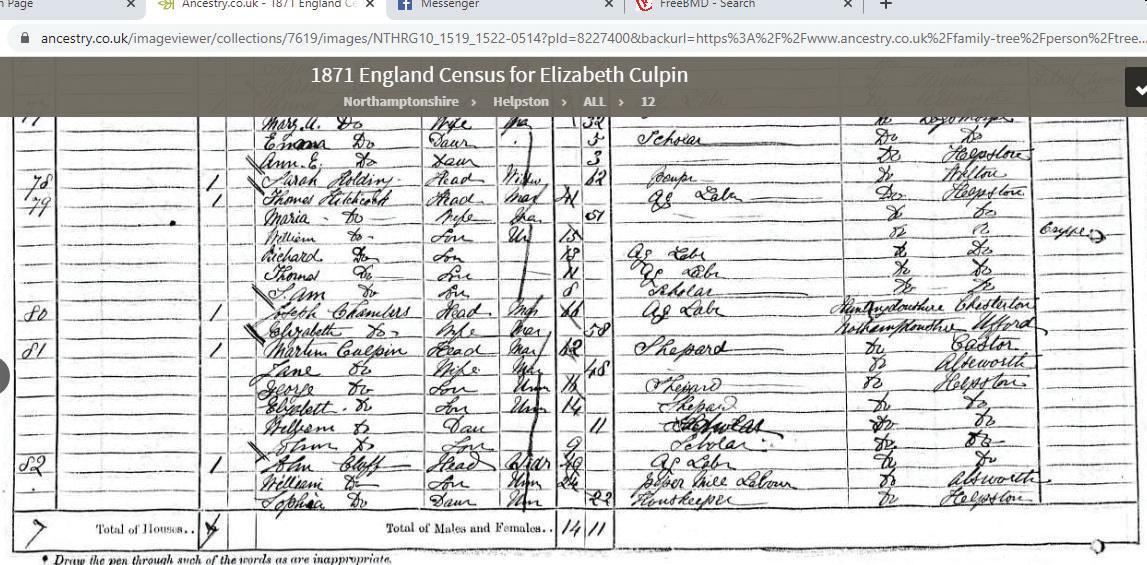 n Page Ancestry.co.uk - 1871 England Ce Messenger FreeBMD - Search
ancestry.co.uk/imageviewer/collections/7619/images/NTHRG10_1519_1522-0514?pId=8227400&backurl=https%3A%2F%2Fwww.ancestry.co.uk%2Ffamily-tree%2Fperson%2Ftree...
1871 England Census for Elizabeth Culpin
Northamptonshire > Helpston > ALL > 12
77 Mary A. Do Wife Mar 32 Do
Emma Do Daur 5 Scholar Do Do
Ann E. Do Daur 3 Do Helpstone
78 1 Sarah Holding Head Widw 62 Do
79 1 Thomas Hitchcott Head Mar 41 Ag Labr Do Helpstone
Maria Do Wife Mar 51 Do Do
William Do Son Un 15 Do Do
Richard Do Son 13 Ag Labr Do Do
Thomas Do Son 11 Ag Labr Do Do
Do Son 8 Scholar Do Do
80 1 Joseph Chambers Head Mar 66 Ag Labr Huntingdonshire Chesterton
Elizabeth Do Wife Mar 58 Northamptonshire Ufford
81 1 Martin Culpin Head Mar 62 Shepard Do Castor
Jane Do Wife Mar 48 Do Ailsworth
George Do Son Unm 16 Shepard Do Helpston
Do Son Unm 14 Shepard Do Do
William Do Dau 11 Scholar Do Do
John Do Son 9 Scholar Do Do
82 1 John Cluff Head Widr 49 Ag Labr Do Do
William Do Son Unm 24 paper Mill Labour Do Ailsworth
Sophia Do Daur Unm 22 Houskeeper Do Helpston
7 Total of Houses.. Total of Males and Females.. 14 11
• Draw the pen through such of the words as are inappropriate.